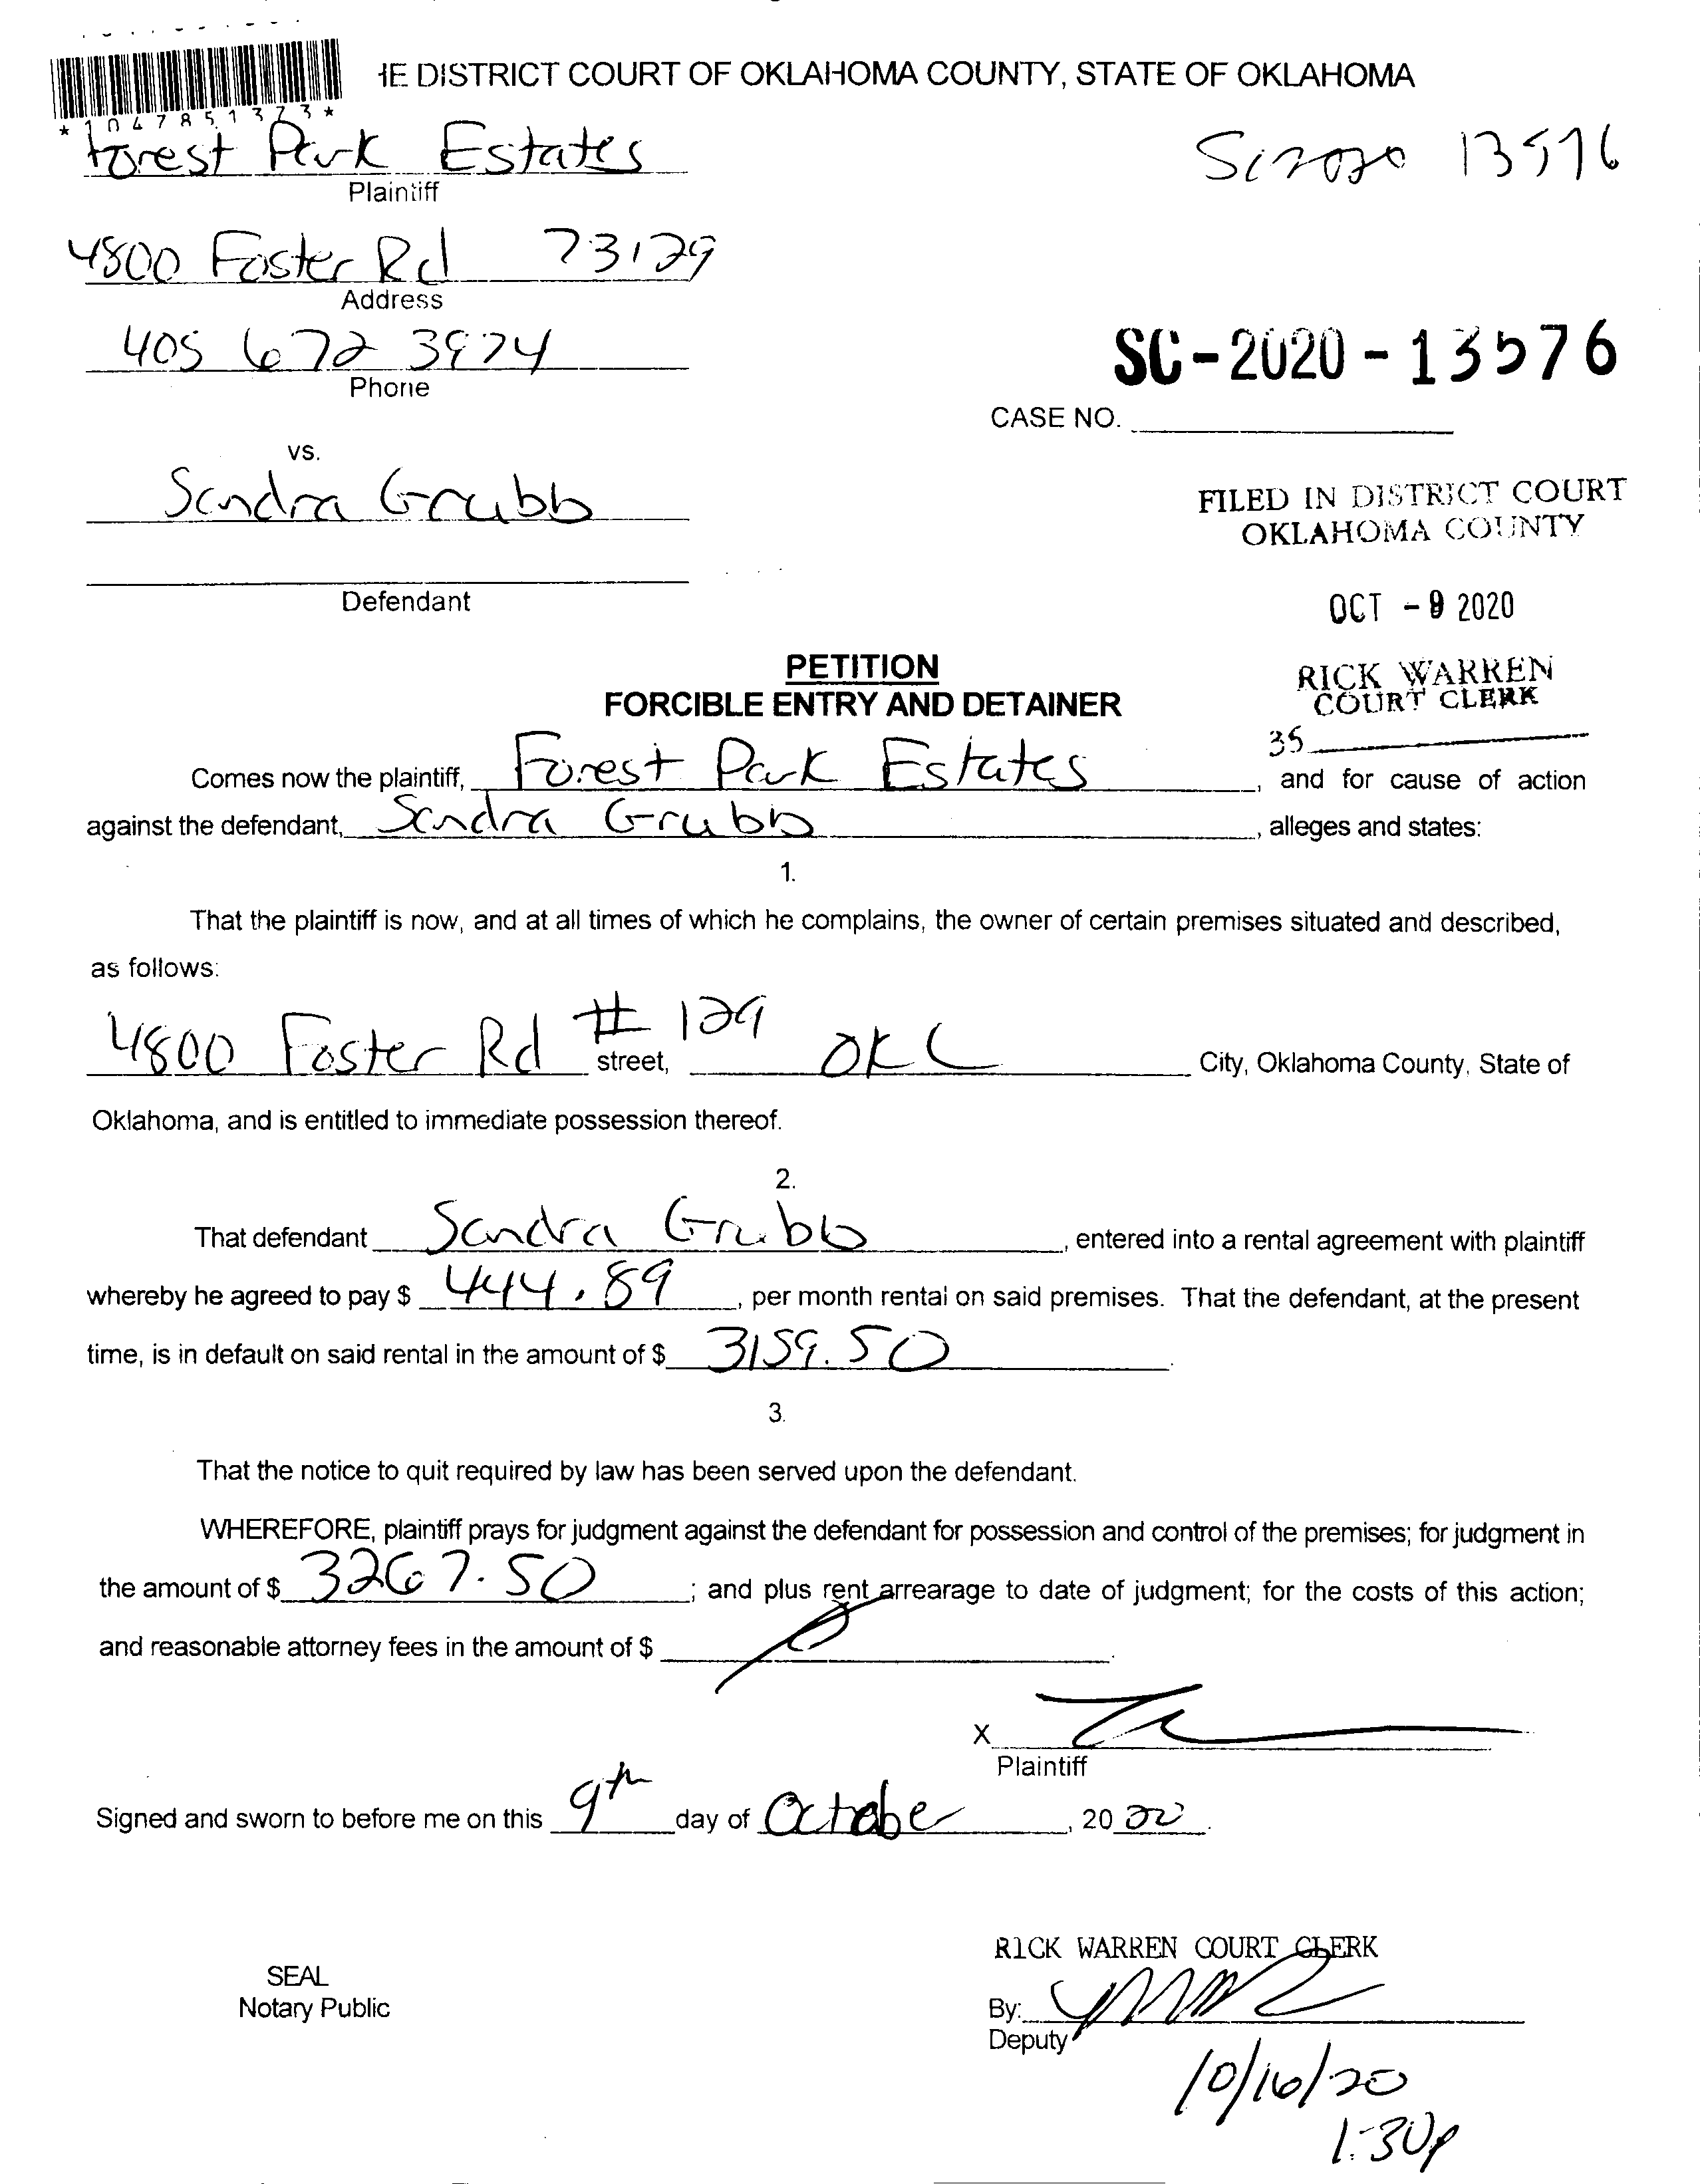 *1047851373*
IE DISTRICT COURT OF OKLAHOMA COUNTY, STATE OF OKLAHOMA
Forest Park Estates
Plaintiff
4800 Foster Rd 73129
Address
405 672 3974
Phone
SC-2020-13576
CASE NO.
vs.
Sandra Grubb
Defendant
FILED IN DISTRICT COURT
OKLAHOMA COUNTY
OCT - 9 2020
RICK WARREN
COURT CLERK
35
PETITION
FORCIBLE ENTRY AND DETAINER
Comes now the plaintiff, Forest Park Estates, and for cause of action
against the defendant, Sandra Grubb, alleges and states:
1.
That the plaintiff is now, and at all times of which he complains, the owner of certain premises situated and described,
as follows:
4800 Foster Rd # 129 street, OKC City, Oklahoma County, State of
Oklahoma, and is entitled to immediate possession thereof.
2.
That defendant Sandra Grubb, entered into a rental agreement with plaintiff
whereby he agreed to pay $ 444.89, per month rental on said premises. That the defendant, at the present
time, is in default on said rental in the amount of $ 3159.50.
3.
That the notice to quit required by law has been served upon the defendant.
WHEREFORE, plaintiff prays for judgment against the defendant for possession and control of the premises; for judgment in
the amount of $ 3267.50; and plus rent arrearage to date of judgment; for the costs of this action;
and reasonable attorney fees in the amount of $
X
Plaintiff
Signed and sworn to before me on this 9th day of October, 2020.
SEAL
Notary Public
RICK WARREN COURT CLERK
By:
Deputy
10/16/20
1:30p